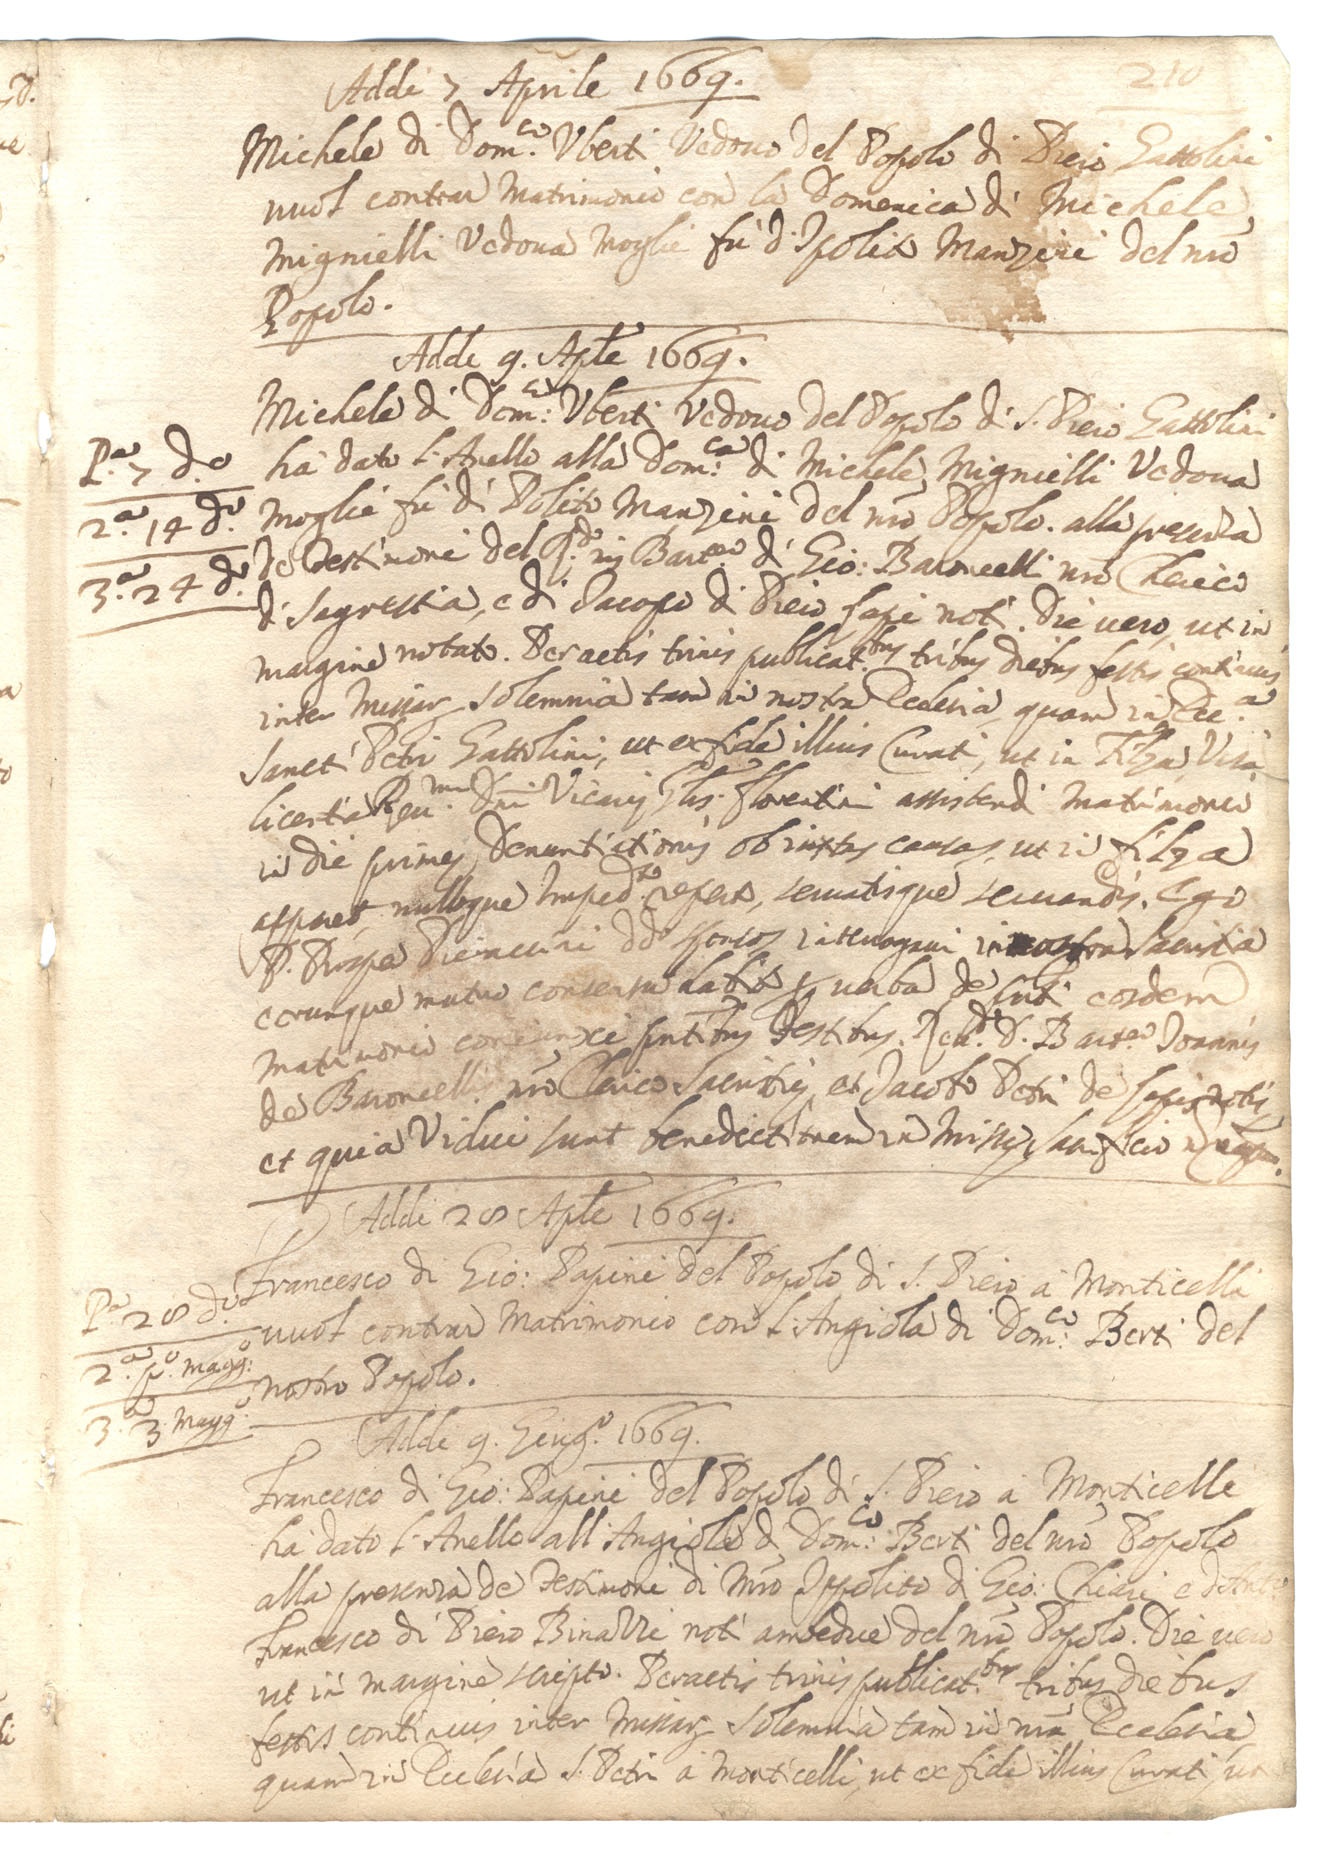 210
Addi 7 Aprile 1669.
Michele di Dom.co Vberti Vedouo del Popolo di Piero Gattolini
uuol contrar Matrimonio con la Domenica di Michele
Mignielli Vedoua Moglie fù di Ipolito Manzini del nro
Popolo.
Adde 9. Aple 1669.
Michele di Dom.co Vberti Vedouo del Popolo di S. Piero Gattolini
P.a 7 d.o
ha dato l'Anello alla Dom.ca di Michele Mignielli Vedoua
2.a 14 d.o
Moglie fù di Polito Manzini del nro Popolo. alla presenza
de Testimoni del Bart.eo di Gio: Baroncelli nro Cherico
3.a 24 d.o
di Sagrestia, e di Jacopo di Piero noti. Die uero, ut in
margine notato. Peractis trinis publicat.bus tribus diebus festis continuis
inter Missar solemnia tam in nostra Ecclesia quam in Ecc.a
Sancti Petri Gattolini, ut ex fide illius Curati, ut in Filza, Visa
licentia Dni Vicarij Florentini assistendi Matrimonio
in die prime Denuntiationis ob iustas causas, ut in filza
apparet, nulloque Imped.to repert, seruatisque seruandis. Ego
P. Prospe interrogaui in nostra Sacristia
eorumque mutuo consensu habito p uerba de pnti eosdem
Matrimonio coniunxi pntibus Testibus. D. Bart.eo Joannis
de Baroncelli nro Clerico Sacristie, et Jacobo Petri de notis
et quia Vidui sunt benedictionem in Missa
Addi 28 Aple 1669.
Francesco di Gio: Papini del Popolo di S. Piero a Monticelli
P.a 28 d.o
uuol contrar Matrimonio con l'Angiola di Dom.co Berti del
2.a p.o Magg:o
nostro Popolo.
3.a 3 Magg:o
Addi 9. Giug.o 1669.
Francesco di Gio: Papini del Popolo di S. Piero a Monticelli
ha dato l'Anello all'Angiola di Dom.co Berti del nro Popolo
alla presenza de Testimoni di Mro Ippolito di Gio: Chiari e
Francesco di Piero noti ambedue del nro Popolo. Die uero
ut in margine scripto. Peractis trinis publicat.bus tribus diebus
festis continuis inter Missar solemnia tam in nra Ecclesia
quam in Ecclesia S. Petri a Monticelli, ut ex fide illius Curati, ut